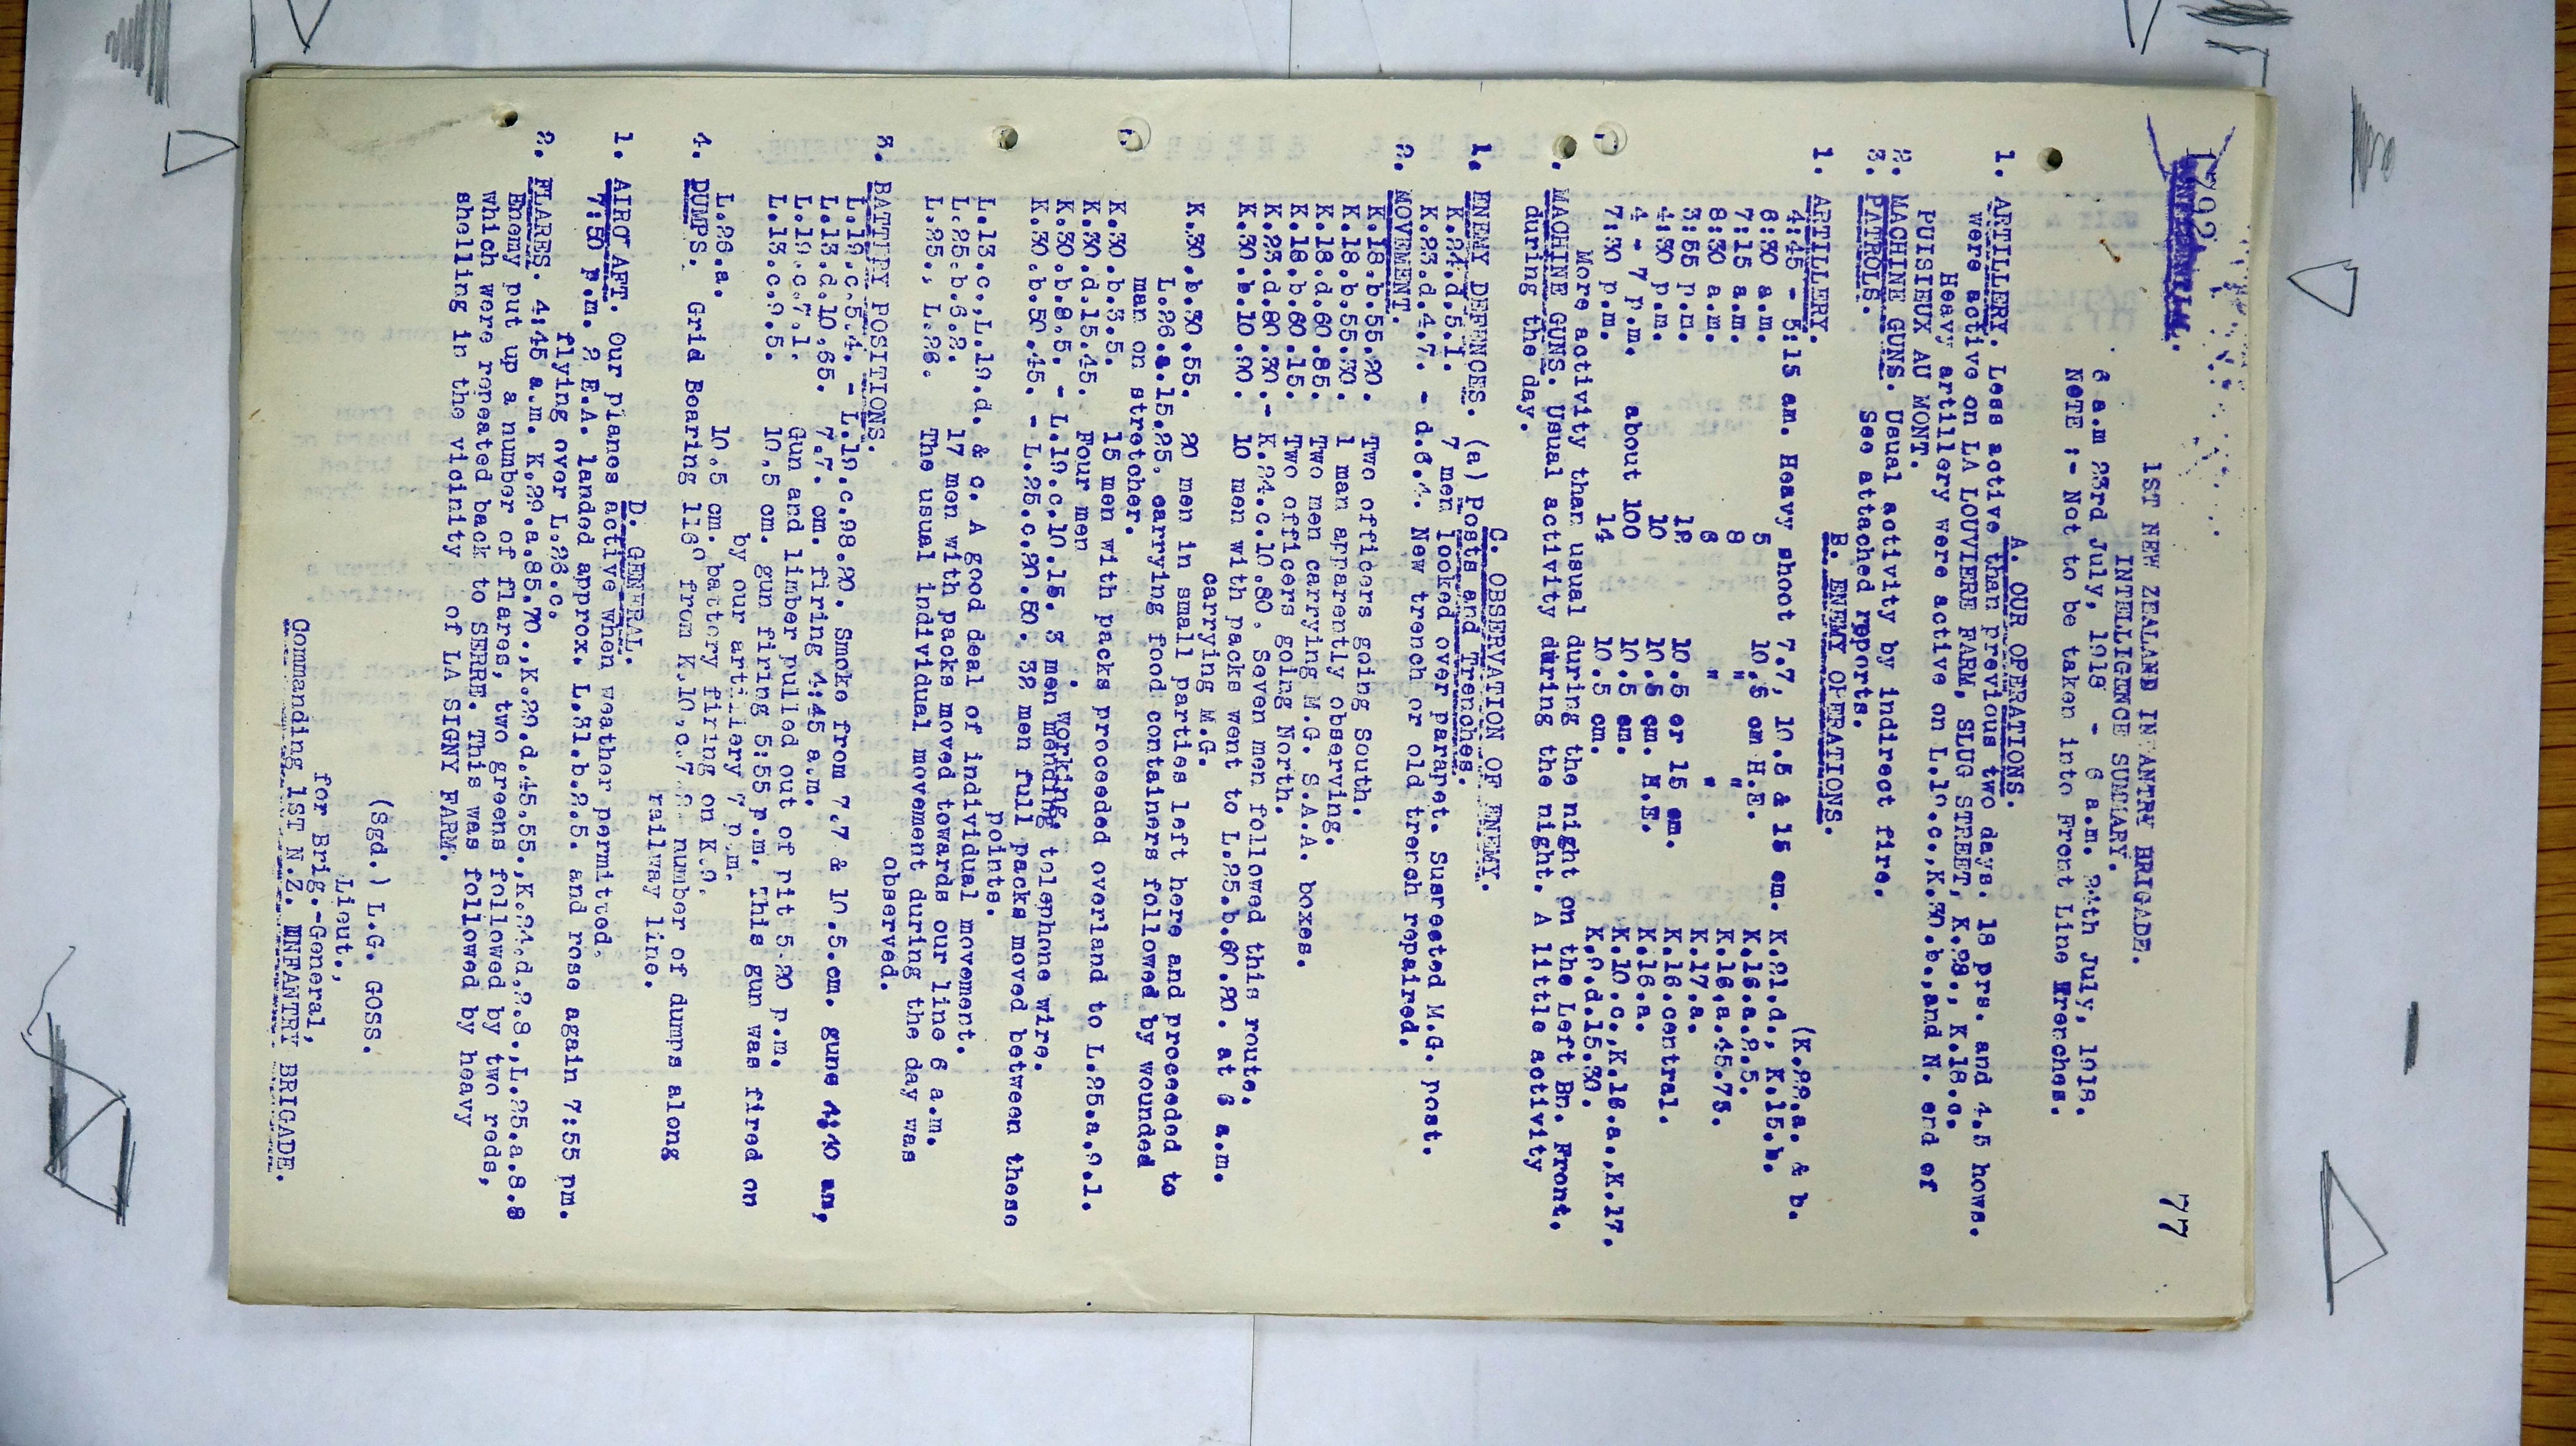 1792
77
CONFIDENTIAL.
1ST NEW ZEALAND INFANTRY BRIGADE.
INTELLIGENCE SUMMARY.
6 a.m 23rd July, 1918 - 6 a.m. 24th July, 1918.
NOTE :- Not to be taken into Front Line Trenches.
A. OUR OPERATIONS.
1. ARTILLERY. Less active than previous two days. 18 prs. and 4.5 hows.
were active on LA LOUVIERE FARM, SLUG STREET, K.28., K.18.c.
Heavy artillery were active on L.19.c.,K.30.b.,and N. end of
PUISIEUX AU MONT.
2. MACHINE GUNS. Usual activity by indirect fire.
3. PATROLS. See attached reports.
B. ENEMY OPERATIONS.
1. ARTILLERY.
(K.22.a. & b.
4:45 - 5:15 am. Heavy shoot 7.7, 10.5 & 15 cm. K.21.d., K.15.b.
6:30 a.m. 5 10.5 cm H.E. K.16.a.2.5.
7:15 a.m. 8 " " K.16.a.45.75.
8:30 a.m. 6 " " K.17.a.
3:55 p.m. 12 10.5 or 15 cm. K.16.central.
4:30 p.m. 10 10.5 cm. H.E. K.16.a.
4 - 7 p.m. about 100 10.5 cm. K.10.c.,K.16.a.,K.17.
7:30 p.m. 14 10.5 cm. K.9.d.15.30.
. MACHINE GUNS. Usual activity during the night. A little activity
More activity than usual during the night on the Left Bn. Front.
during the day.
C. OBSERVATION OF ENEMY.
1. ENEMY DEFENCES. (a) Posts and Trenches.
K.24.d.5.1. 7 men looked over parapet. Suspected M.G. post.
K.23.d.4.7. - d.6.4. New trench or old trench repaired.
2. MOVEMENT.
K.18.b.55.20. Two officers going South.
K.18.b.55.30. 1 man apparently observing.
K.18.d.60.85. Two men carrying M.G. S.A.A. boxes.
K.18.b.60.15. Two officers going North.
K.23.d.80.30.- K.24.c.10.80. Seven men followed this route,
carrying M.G.
K.30.b.10.90. 10 men with packs went to L.25.b.60.20. at 6 a.m.
K.30.b.30.55. 20 men in small parties left here and proceeded to
L.26.a.15.25. carrying food containers followed by wounded
man on stretcher.
K.30.b.3.5. 15 men with packs proceeded overland to L.25.a.9.1.
K.30.d.15.45. Four men working.
K.30.b.8.5. - L.19.c.10.15. 3 men mending telephone wire.
K.30.b.50.45. - L.25.c.20.50. 32 men full packs moved between these
points.
L.13.c.,L.19.d. & c. A good deal of individual movement.
L.25.b.6.2. 17 men with packs moved towards our line 6 a.m.
L.25., L.26. The usual individual movement during the day was
observed.
3. BATTERY POSITIONS.
L.19.c.5.4. - L.19.c.98.20. Smoke from 7.7 & 10.5.cm. guns 4:40 am,
L.13.d.10.65. 7.7. cm. firing 4:45 a.m.
L.19.c.7.1. Gun and limber pulled out of pit 5.20 p.m.
L.13.c.9.5. 10.5 cm. gun firing 5:55 p.m. This gun was fired on
by our artillery 7 p.m.
L.26.a. 10.5 cm. battery firing on K.9.
4. DUMPS. Grid Bearing 116° from K.10.c.7.2 number of dumps along
railway line.
D. GENERAL.
1. AIRCRAFT. Our planes active when weather permitted.
7:50 p.m. 2 E.A. landed approx. L.31.b.2.5. and rose again 7:55 pm.
flying over L.26.c.
2. FLARES. 4:45 a.m. K.29.a.85.70.,K.29.d.45.55.,K.24.d.2.8.,L.25.a.8.8
Enemy put up a number of flares, two greens followed by two reds,
which were repeated back to SERRE. This was followed by heavy
shelling in the vicinity of LA SIGNY FARM.
(Sgd.) L.G. GOSS.
Lieut.,
for Brig.-General,
Commanding 1ST N.Z. INFANTRY BRIGADE.